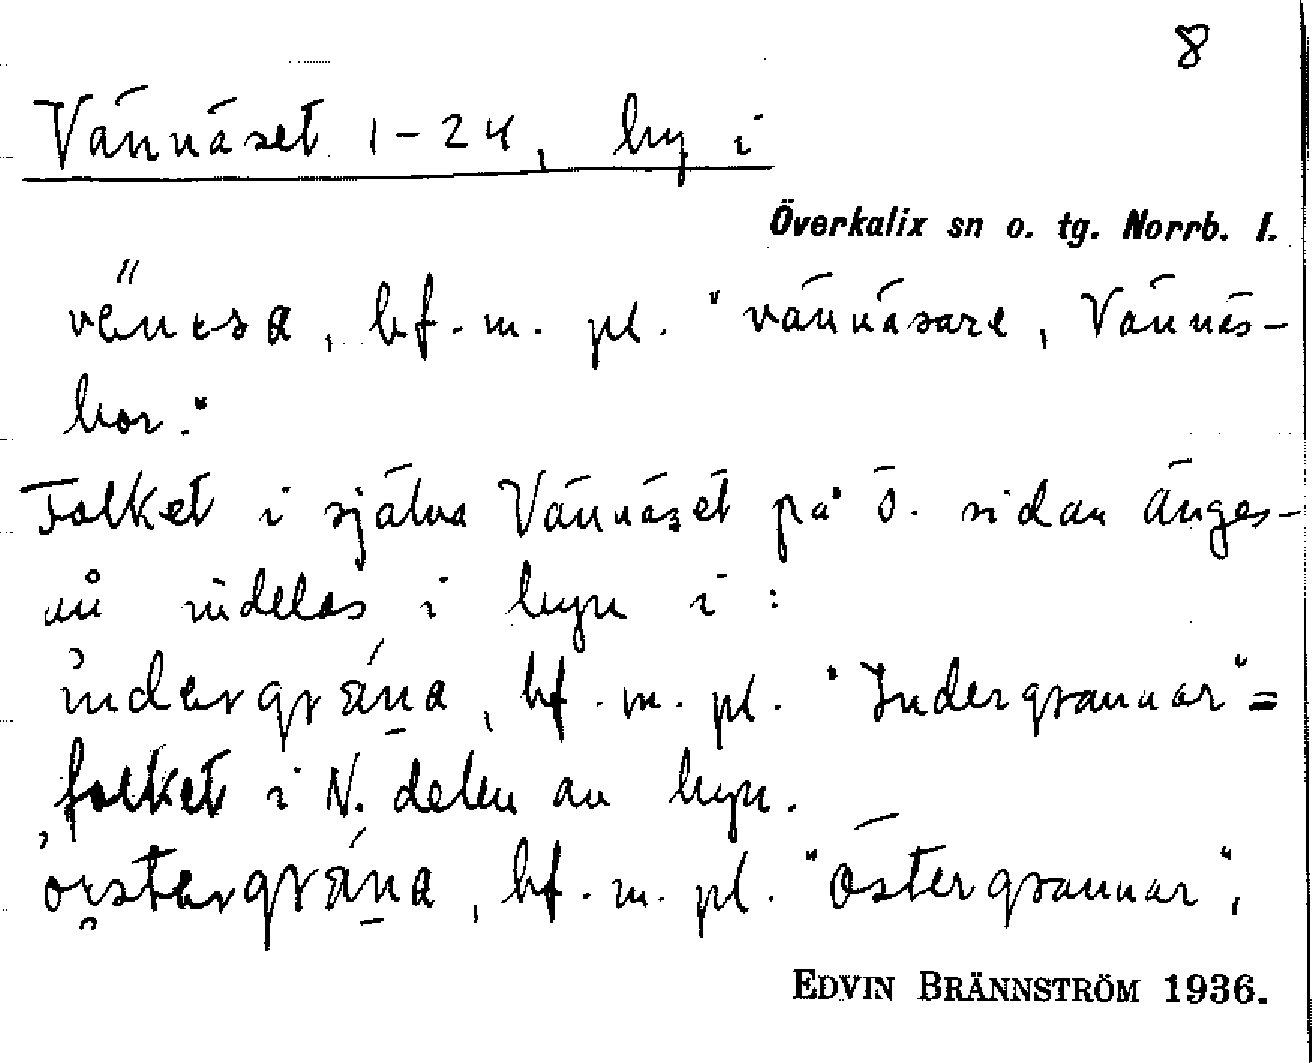 8
Vännäset 1-24, by i
Överkalix sn o. tg. Norrb. l.
bf. m. pl. "vännäsare, Vännäs-
bor."
Folket i själva Vännäset på ö. sidan Änges-
ån indelas i byn i:
bf. m. pl. "Indergrannar" =
folket i N. delen av byn.
bf. m. pl. "östergrannar",
EDVIN BRÄNNSTRÖM 1936.